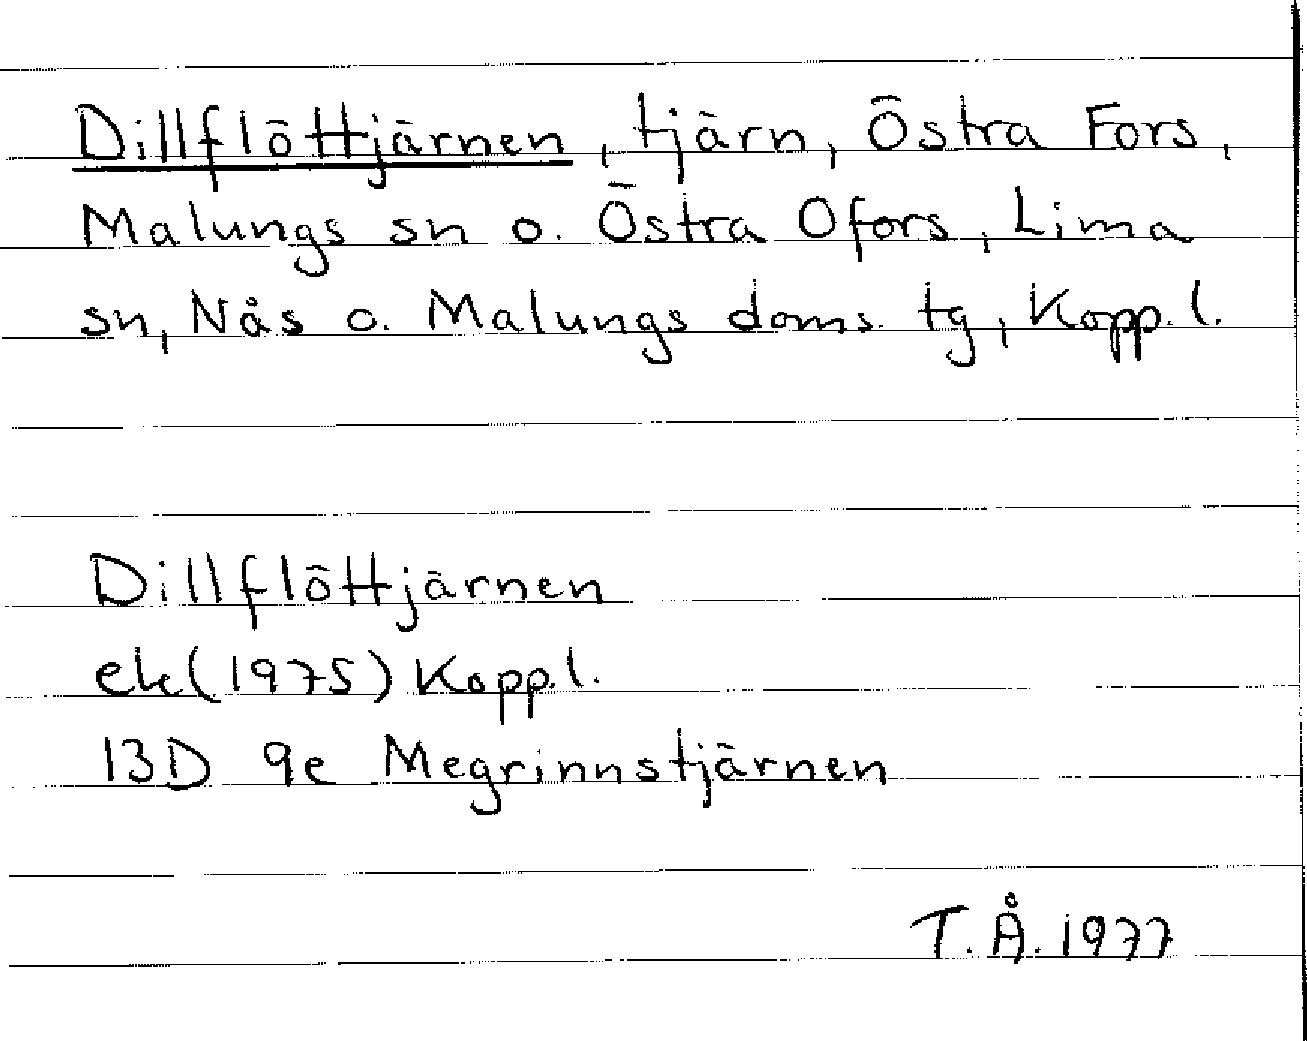 Dillflöttjärnen, tjärn, Östra Fors,
Malungs sn o. Östra Ofors, Lima
sn, Nås o. Malungs doms. tg, Kopp. l.
Dillflöttjärnen
ek(1975) Kopp.l.
13D 9e Megrinnstjärnen
T.Å. 1977